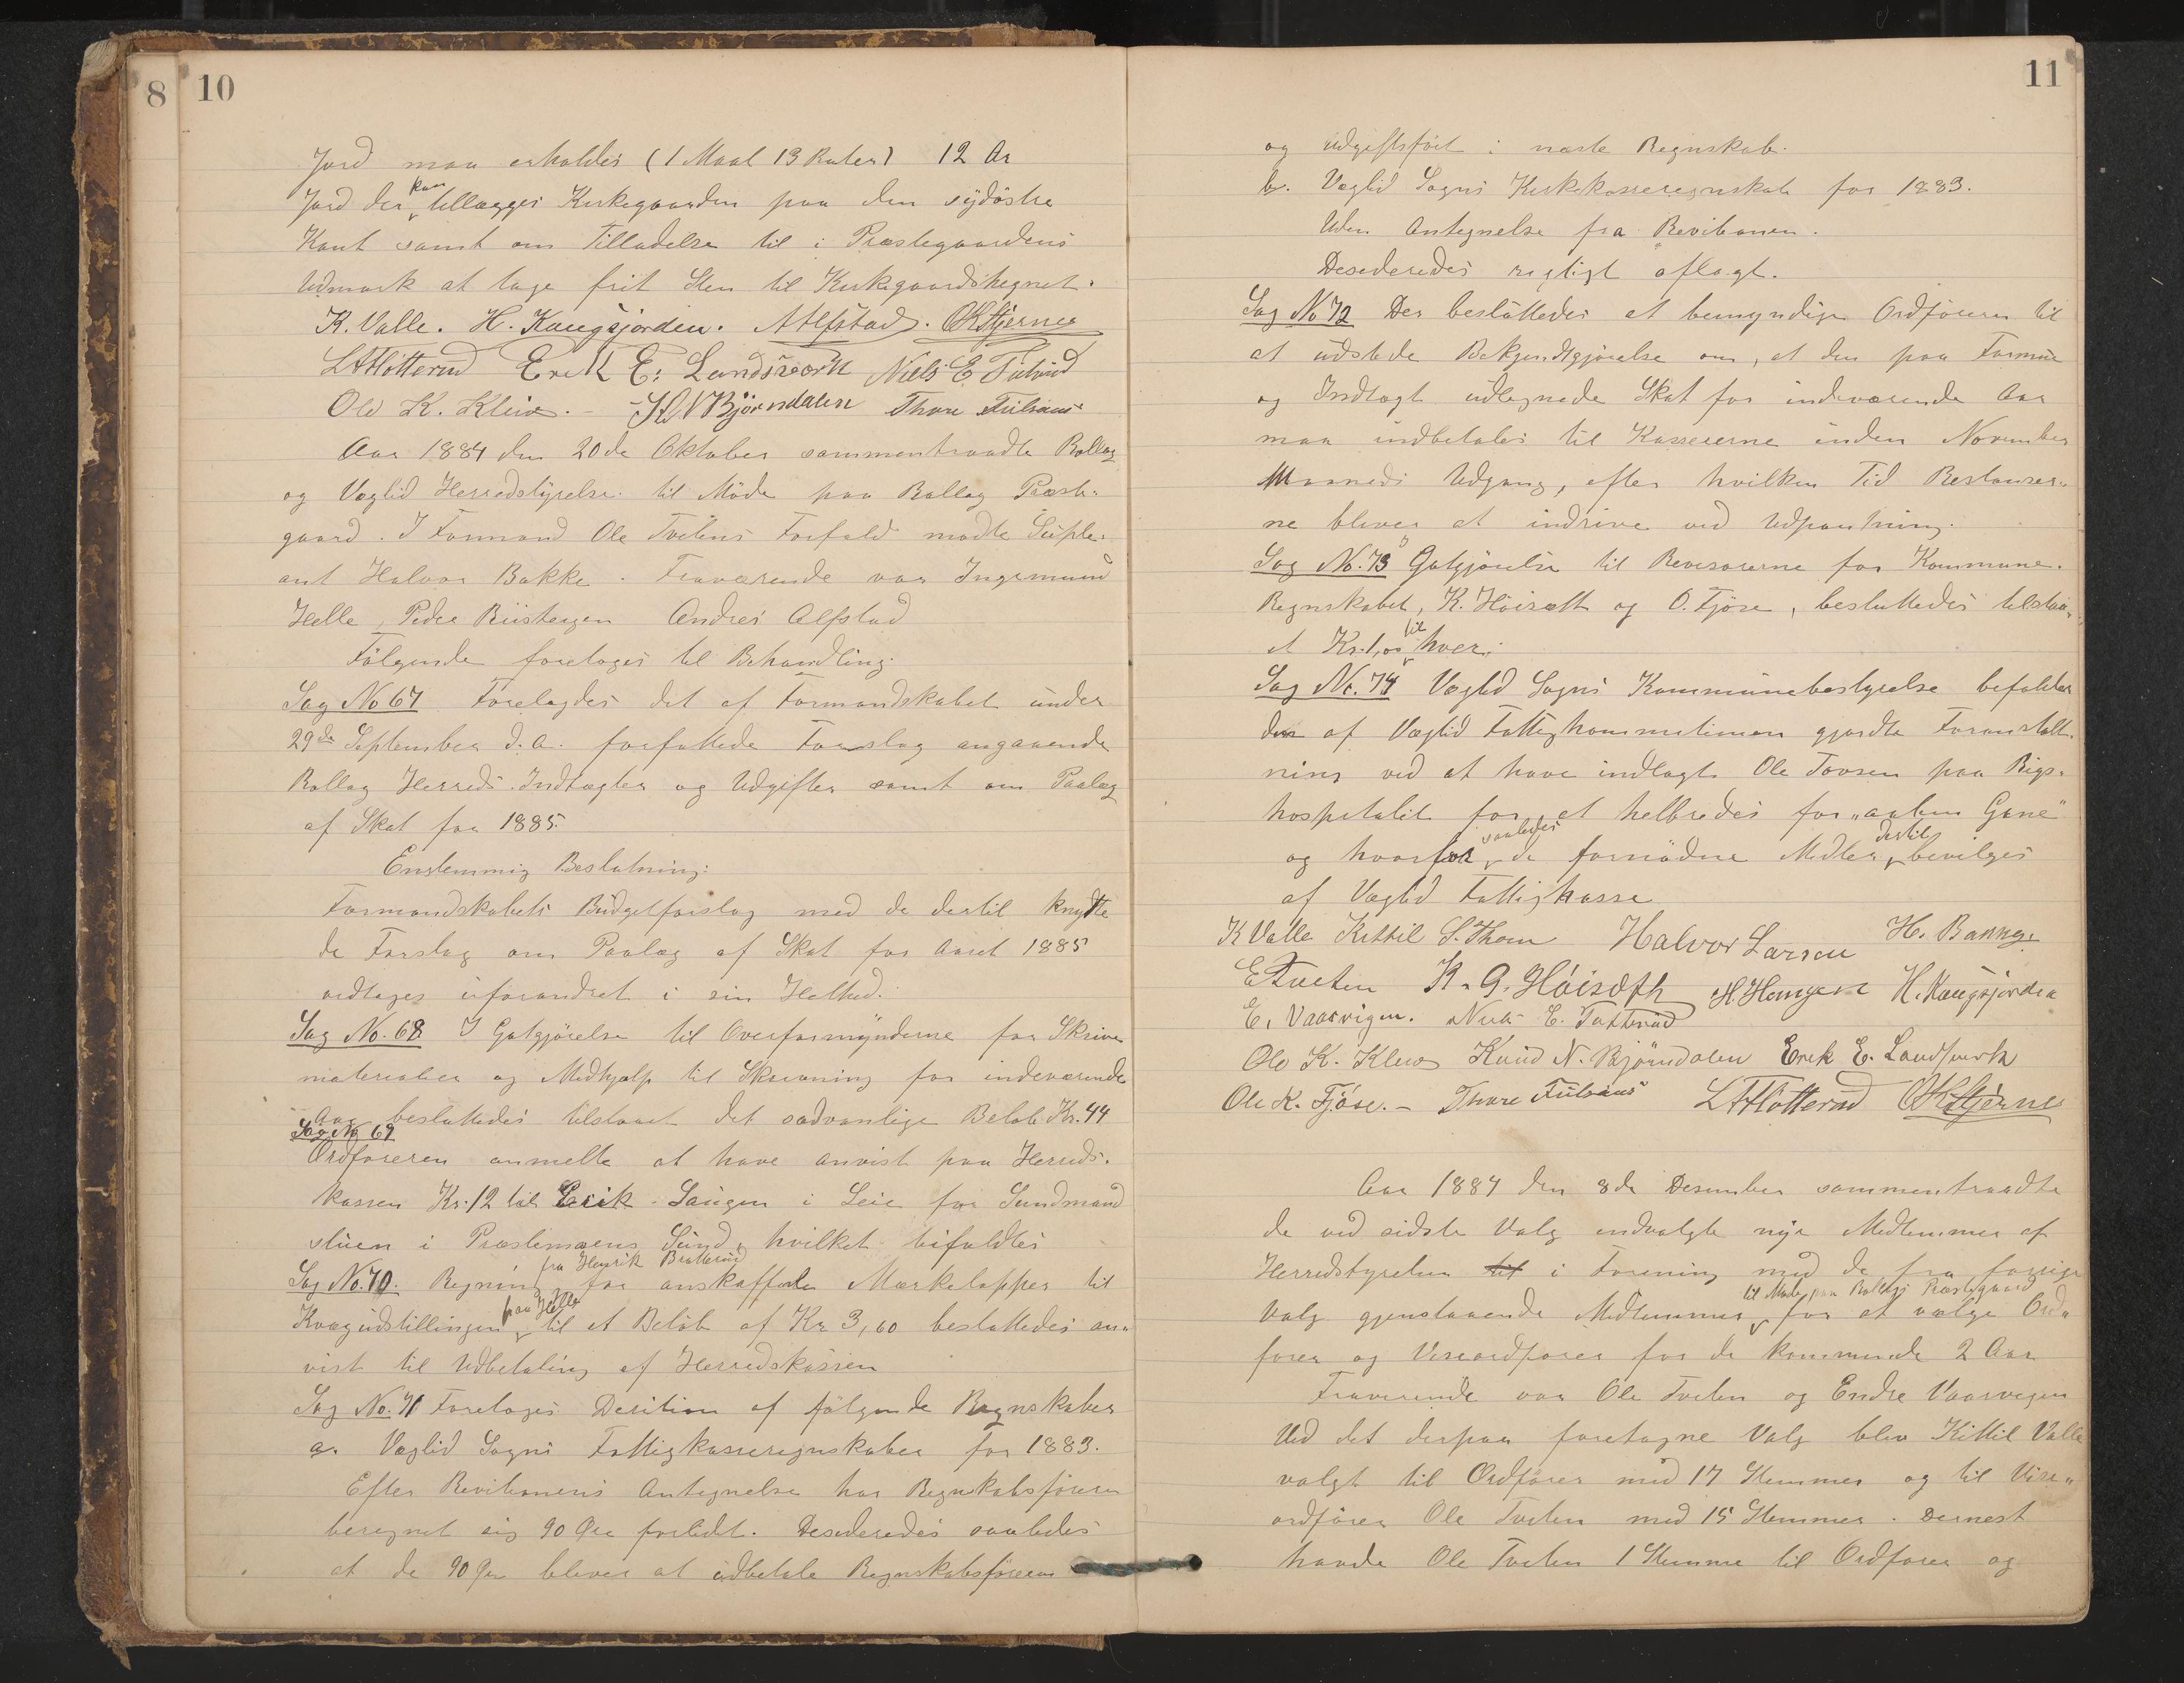 8
10
Jord maa erholdes (1 Maal 13 Ruter) 12 Ar
Jord der kan tillægges Kirkegaarden paa den sydöstre
Kant samt om Tilladelse til i Præstegaardens
Udmark at tage frit Sten til Kirkegaardshegnet.
K. Valle. H. Kaugsjorden. AAlfstad. OKStjernes
LHFlötterud Erik E. Landsværk Niels E
Ole K. Kleiv. - Kd NBjörndalen Thore
Aar 1884 den 20de Oktober sammentraadte Rollag
og Væglid Herredstyrelse til Möde paa Rollag Præste-
gaard. I Formand Ole Tvetens Forfald mødte Suple-
ant Halvor Bakke. Fraværende var Ingemund
Helle, Peder Andres Alfstad
Følgende foretoges til Behandling.
Sag No 67 Forelagdes det af Formandskabet under
29de September d.A. forfattede Forslag angaaende
Rollag Herreds Indtægter og Udgifter samt om Paalæg
af Skat for 1885.
Enstemmig Beslutning:
Formandskabets Budgetforslag med de dertil knytte
de Forslag om Paalæg af Skat for Aaret 1885
vedtages uforandret i sin Helhed.
Sag No. 68 I Godtgjørelse til Overformynderne for Skrive
materialier og Medhjælp til Skrivning for indeværende
Aar besluttedes tilstaaet det sædvanlige Beløb Kr. 44
Sag No 69
Ordføreren anmelte at have anvist paa Herreds-
kassen Kr. 12 til Erik Laugen i Leie for Sundmand
stuen i Præstemoens Sund, hvilket bifaldtes
Sag No. 70. Regning fra Henrik Bratterud for anskaffede Mærkelapper til
Kvægudstillingen paa Helle til et Beløb af Kr 3,60 besluttedes an-
vist til Udbetaling af Herredskassen
Sag No. 71 Foretoges Desition af følgende Regnskaber
a. Væglid Sogns Fattigkasseregnskaber for 1883.
Efter Revisionens Antegnelse har Regnskabsføreren
beregnet sig 90 Øre forlidt. Desederedes saaledes
at de 90 Øre bliver at udbetale Regnskabsføreren
11
og udgiftsført i næste Regnskab.
b. Væglid Sogns Kirkekasseregnskab for 1883.
Uden Antegnelse fra Revisionen.
Desederedes rigtigt aflagt.
Sag No 72 Der besluttedes at bemyndige Ordføreren til
at udstede Bekjendtgjørelse om, at den paa Formue
og Indtægt udlignede Skat for indeværende Aar
maa indbetales til Kassererne inden November
Maaneds Udgang, efter hvilken Tid Restanser-
ne bliver at indrive ved Udpantning.
Sag No. 73 Gotgjørelse til Revisorerne for Kommune-
Regnskabet, K. Høisæth og O. Fjöse, besluttedes tilstaa-
et Kr. 1,00 til hver.
Sag No. 74 Væglid Sogns Kommunebestyrelse befalder
den af Væglid Fattigkommission gjordte Foranstalt-
ning ved at have indlagt Ole Tovsen paa Rigs-
hospitalet for at helbredes for "aaben Gane"
og hvorfor saaledes de fornødne Midler dertil bevilges
af Væglid Fattigkasse
K Valle Kittil S. Thom Halvor Larsen H. Bakke
ETveten K. G. Höisæth H. Haugen H. Kaugsjorden
E. Vaarvigen. Niels E.
Ole K. Kleiv Knud N. Björndalen Erik E. Landsverk
Ole K. Fjöse. - Thore LHFlötterud OKStjernes
Aar 1884 den 8de Desember sammentraadte
de ved sidste Valg indvalgte nye Medlemmer af
Herredstyrelsen til i Forening med de fra forrige
Valg gjenstaaende Medlemmer til Møde paa Rollags Præstegaard for at vælge Ord-
fører og Viseordfører for de kommende 2 Aar
Fraverende var Ole Tveten og Endre Vaarvigen
Ved det derpaa foretagne Valg blev Kittil Valle
valgt til Ordfører med 17 Stemmer og til Vise-
ordfører Ole Tveten med 15 Stemmer. Dernest
havde Ole Tveten 1 Stemme til Ordfører og